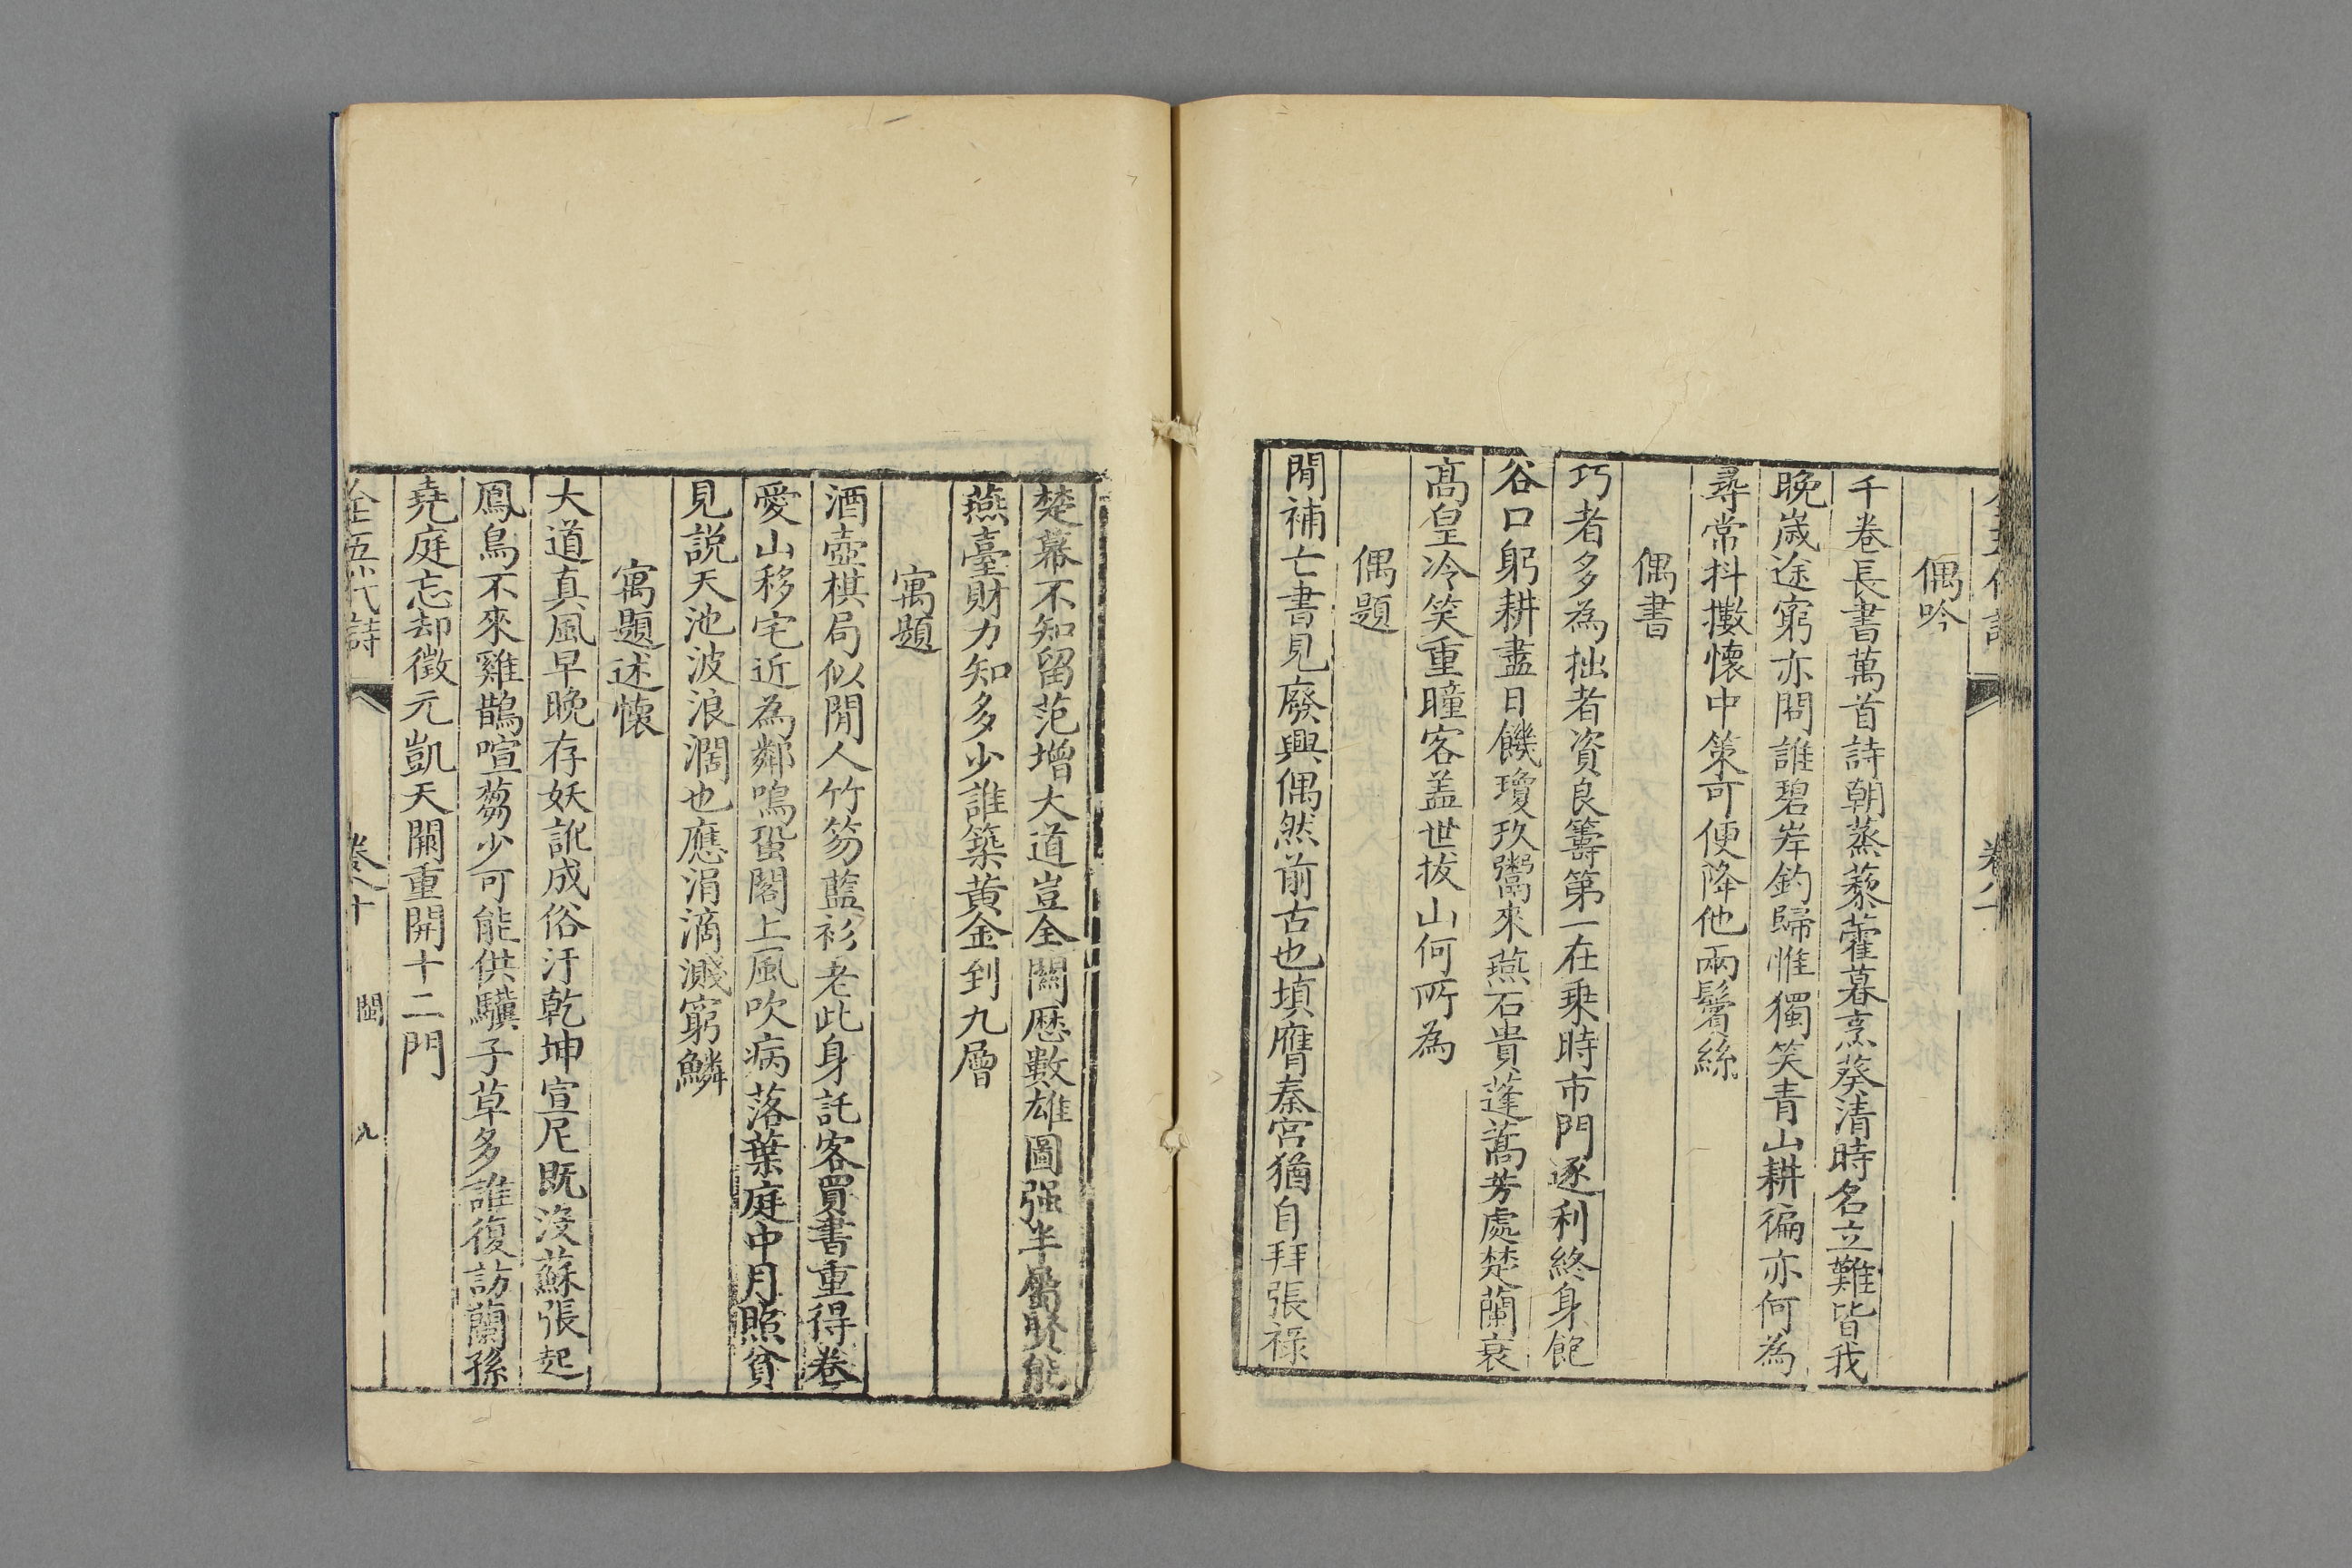 偶吟
千卷長書萬首詩朝蒸藜藿暮烹葵清時名立難皆我
晚歲途窮亦問誰碧岸釣歸惟獨笑青山耕徧亦何為
尋常抖擻懷中策可便降他兩鬢絲
偶書
巧者多為拙者資良籌第一在乗時市門逐利終身飽
谷口躬耕盡日饑瓊玖鬻來燕石貴蓬蒿芳處楚蘭衰
高皇冷笑重瞳客盖世拔山何所為
偶題
閒補亡書見廢興偶然前古也填膺秦宮猶自拜張祿
楚幕不知留范增大道豈全關歷數雄圖强半屬賢能
燕臺財力知多少誰築黄金到九層
寓題
酒壺棋局似閒人竹笏藍衫老此身託客買書重得卷
愛山移宅近為鄰鳴蛩閣上風吹病落葉庭中月照貧
見説天池波浪濶也應涓滴濺窮鱗
寓題述懷
大道真風早晚存妖訛成俗汙乾坤宣尼既没蘇張起
鳳鳥不來雞鵲喧芻少可能供驥子草多誰復訪蘭孫
堯庭忘却徴元凱天闕重開十二門
全五代詩 卷八十 閩 九